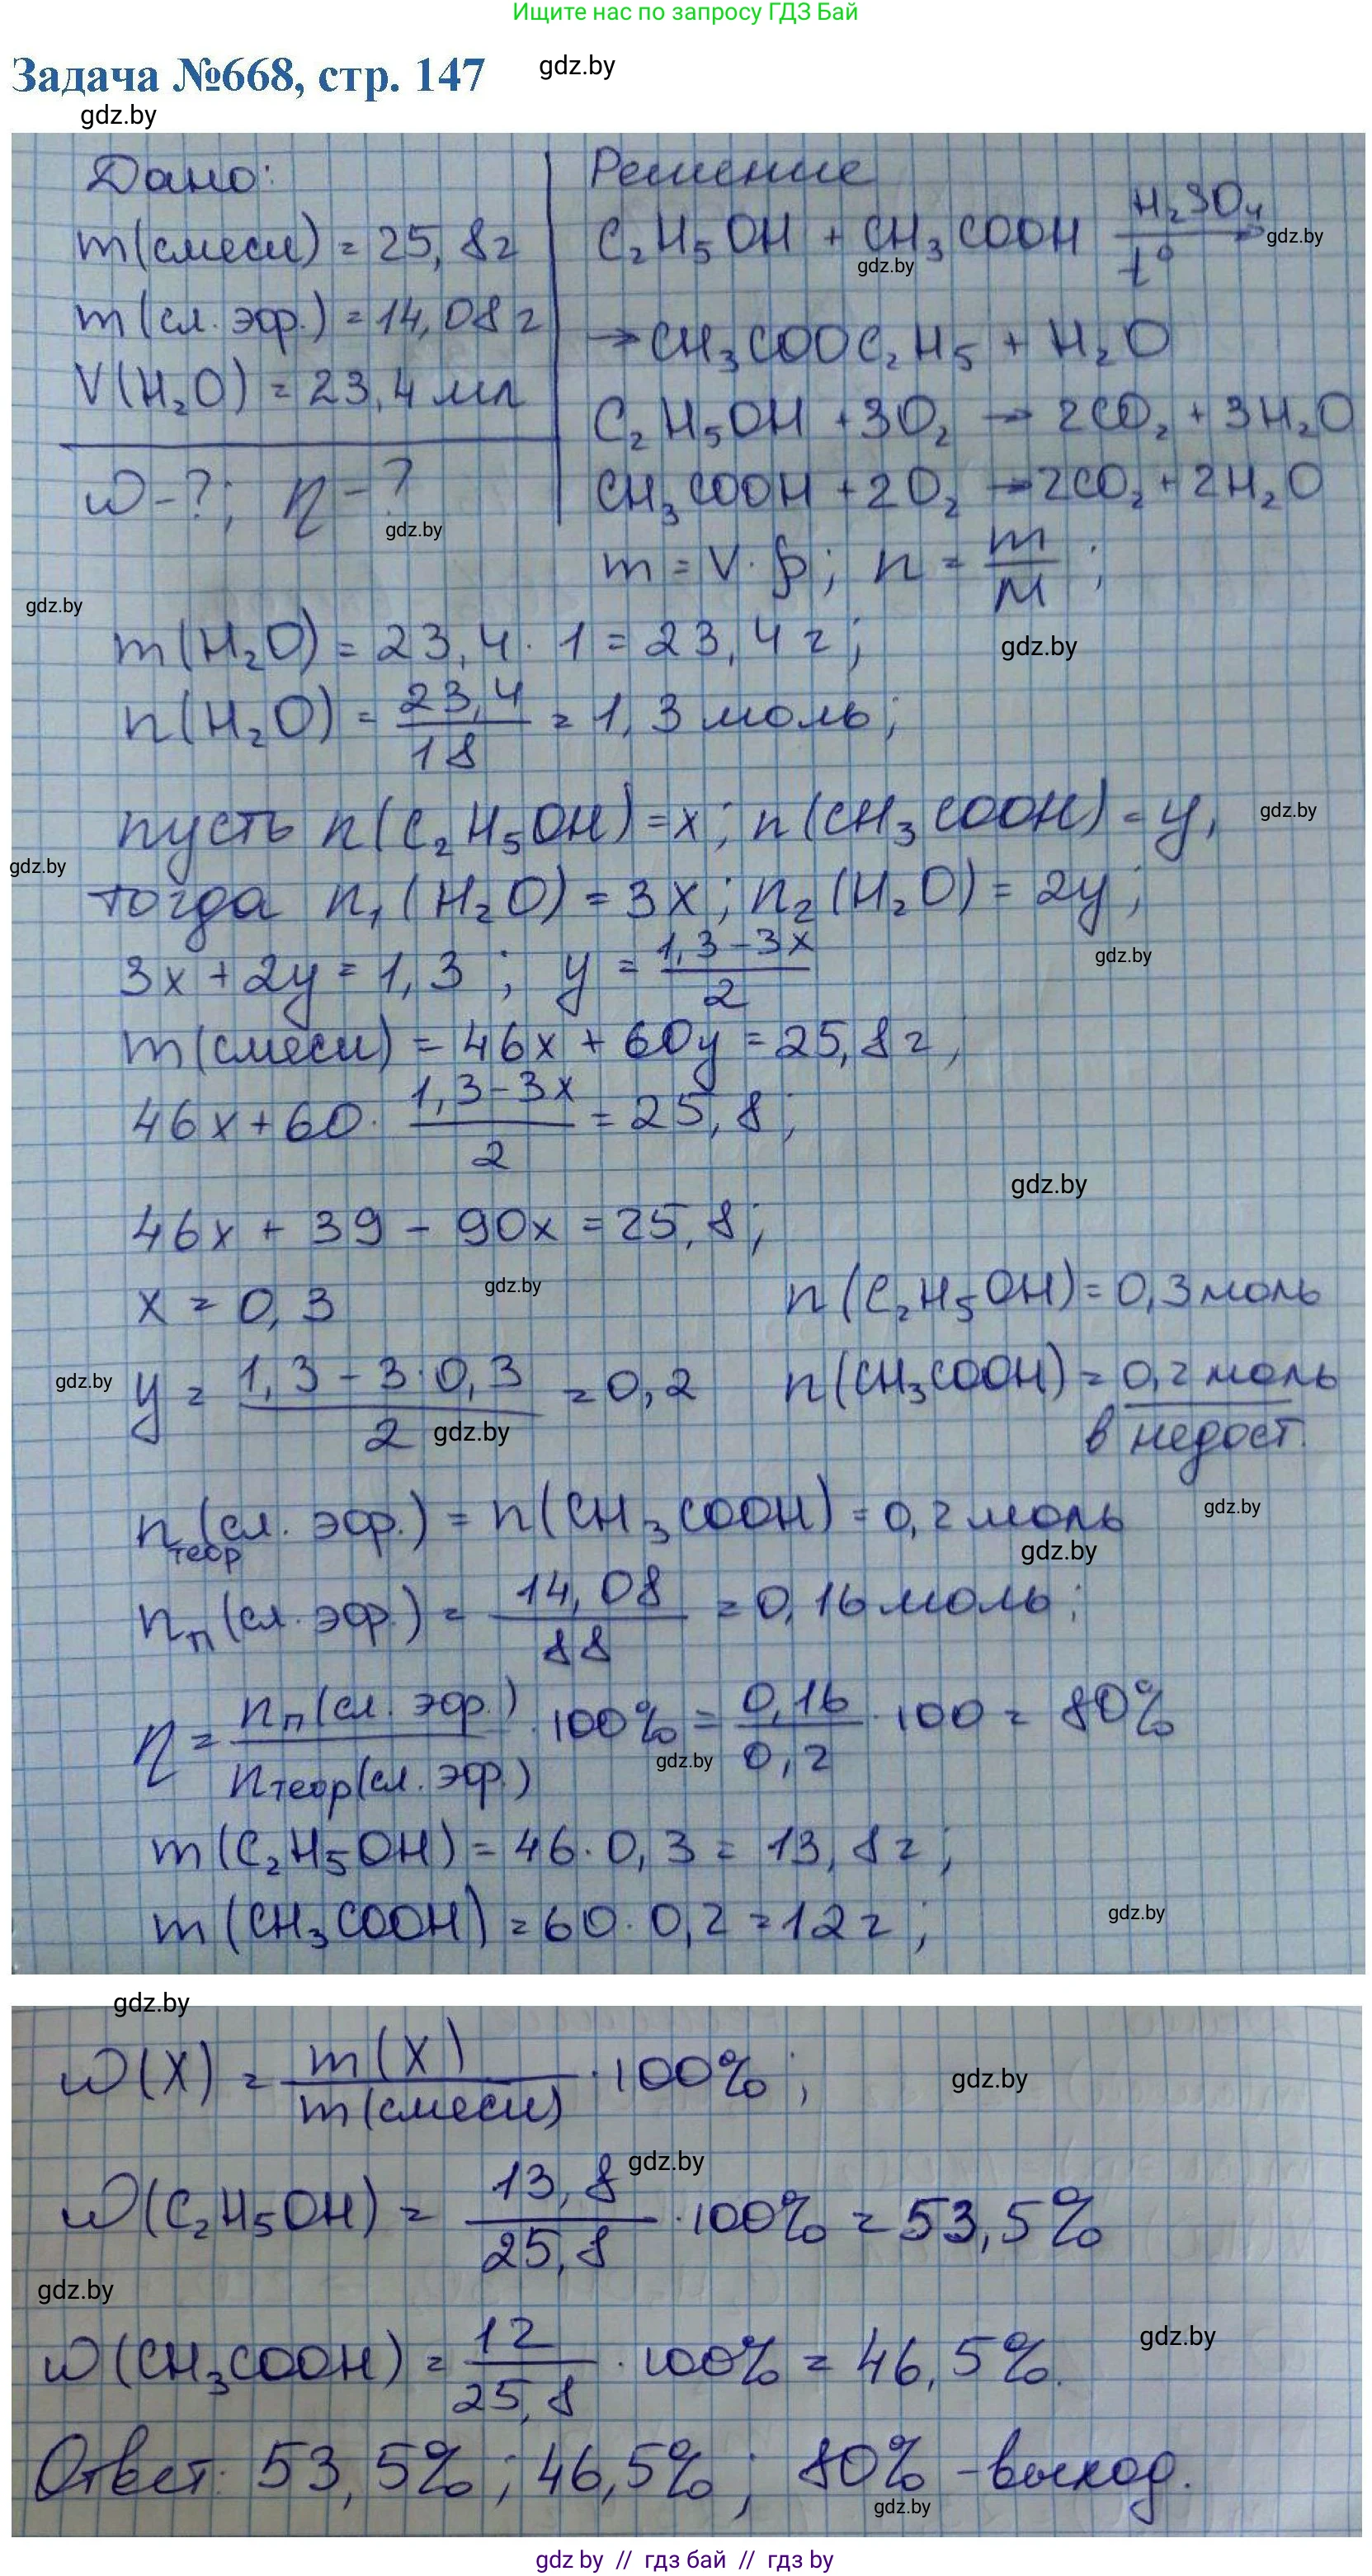 Ищите нас по запросу ГДЗ Бай
Задача №668, стр. 147
gdz.by
gdz.by
Дано:
m(смеси) = 25,8г
m(сл. эфр.) = 14,08г
V(H₂O) = 23,4 мл
ω-?; η-?
gdz.by
Решение
C₂H₅OH + CH₃COOH H₂SO₄ t° →
gdz.by
gdz.by
→ CH₃COOC₂H₅ + H₂O
C₂H₅OH + 3O₂ → 2CO₂ + 3H₂O
CH₃COOH + 2O₂ → 2CO₂ + 2H₂O
m = V·ρ; n = m/M;
gdz.by
m(H₂O) = 23,4 · 1 = 23,4 г;
gdz.by
n(H₂O) = 23,4/18 = 1,3 моль;
пусть n(C₂H₅OH) = x; n(CH₃COOH) = y,
gdz.by
gdz.by
тогда n₁(H₂O) = 3x; n₂(H₂O) = 2y;
gdz.by
3x + 2y = 1,3; y = (1,3-3x)/2
m(смеси) = 46x + 60y = 25,8 г,
46x + 60 · (1,3-3x)/2 = 25,8;
gdz.by
46x + 39 - 90x = 25,8;
x = 0,3
gdz.by
n(C₂H₅OH) = 0,3 моль
gdz.by
y = (1,3-3·0,3)/2 = 0,2
gdz.by
n(CH₃COOH) = 0,2 моль
в недост.
n теор (сл. эфр.) = n(CH₃COOH) = 0,2 моль
gdz.by
gdz.by
nп(сл. эфр.) = 14,08/88 = 0,16 моль;
η = nп(сл. эфр.)/nтеор(сл. эфр.) · 100% = 0,16/0,2 · 100 = 80%
gdz.by
m(C₂H₅OH) = 46 · 0,3 = 13,8 г;
m(CH₃COOH) = 60 · 0,2 = 12 г;
gdz.by
gdz.by
ω(X) = m(X)/m(смеси) · 100%;
gdz.by
gdz.by
ω(C₂H₅OH) = 13,8/25,8 · 100% = 53,5%
gdz.by
gdz.by
ω(CH₃COOH) = 12/25,8 · 100% = 46,5%.
Ответ: 53,5%; 46,5%; 80% - выход.
gdz.by
gdz by // гдз бай // гдз by